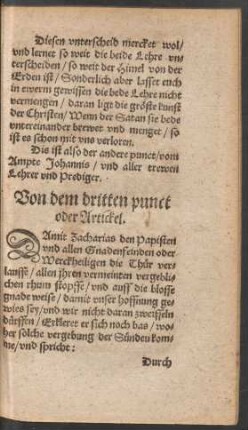 Diesen vnterscheid mercket wol/
vnd lernet so weit die beide Lehre vn
terscheiden/ so weit der Himel von der
Erden ist/ Sonderlich aber lasset euch
in ewerm gewissen die bede Lehre nicht
vermengen/ daran ligt die gröste kunst
der Christen/ Wenn der Satan sie bede
vntereinander hetwet vnd menget/ so
ist es schon mit vns verloren.
Dis ist also der andere punct/ vom
Ampte Johannis/ vnd aller trewen
Lehrer vnd Prediger.
Von dem dritten punct
oder Artickel.
DAmit Zacharias den Papisten
vnd allen Gnadenfeinden oder
Werckheiligen die Thür ver
lauffe/ allen jhren vermeinten vergebli
chen rhum stopffe/ vnd auff die blosse
gnade weise/ damit vnser hoffnung ge
wies sey/ vnd wir nicht daran zweiffeln
dürffen/ Erkleret er sich noch bas/ wo
her solche vergebung der Sünden kom
me/ vnd spricht:
Durch